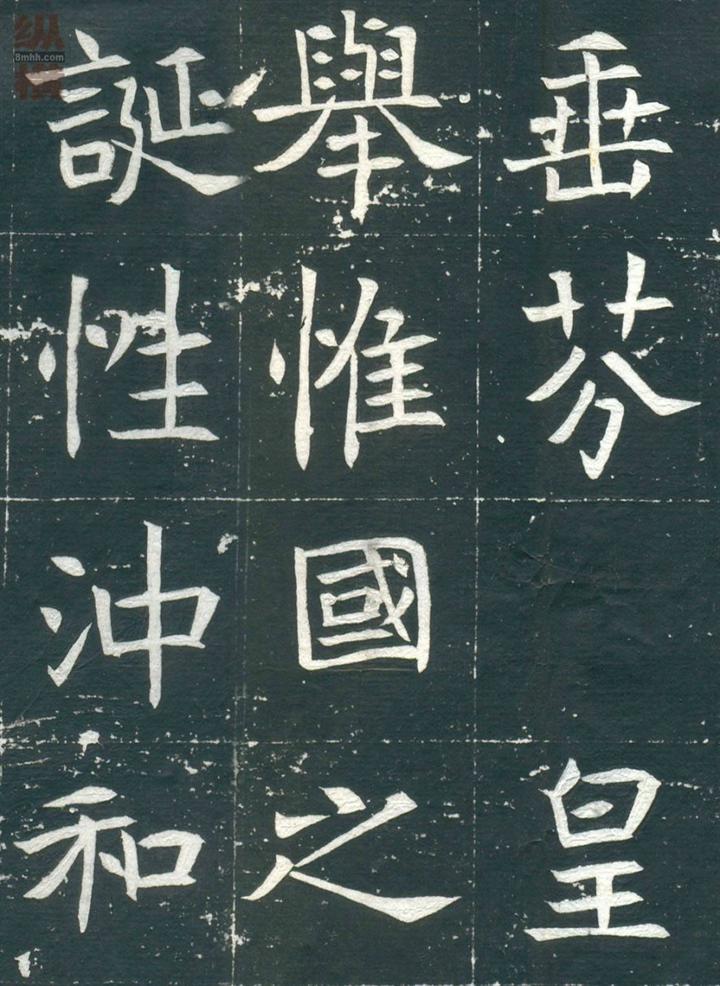 垂芬 皇
舉惟國之
誕性沖和
纵横
8mhh.com